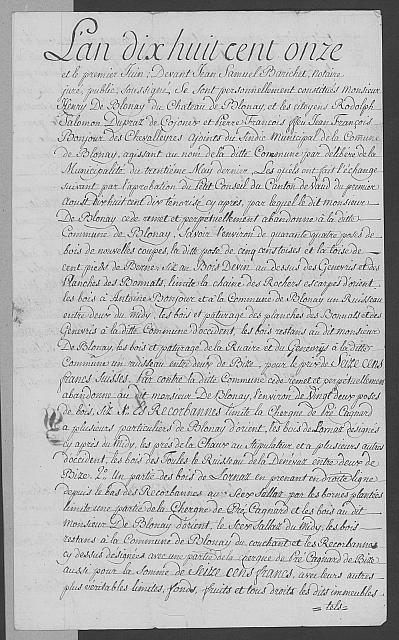 L'an dix huit cent onze
et le premier Juin; Devant Jean Samuel Bonichet, notaire
juré, public, soussigné, se sont personnellement constitués Monsieur
Henry De Blonay du Chateau De Blonay, et les citoyens Rodolph
Salomon Dupraz de Cojonex et Pierre François ffeu Jean François
Bonjour des Chevalleyres ajoints du Sindic Municipal de la Comune
de Blonay, agissant au nom de la ditte Commune par délibéré de la
Municipalité du trentième Mars dernier, Les quels ont fait l'échange
suivant par l'aprobation du Petit Conseil du Canton de Vaud du premier
Aoust mil huit cent dix ci après, par lequel le dit monsieur
De Blonay cede remet et perpétuellement abandonne à la ditte
Commune de Blonay, Savoir l'environ de quarante quatre poses de
bois de nouvelles coupes, la ditte pose de cinq cens toises et la toise de
cent pieds de Berne, Siz au Bois Devin au dessus des Genevris et des
Planches des Bonnats, limite la chaine des Rochers escarpés d'orient,
les bois à Antoine Bonjour et à la Commune de Blonay un Ruisseau
entre deux du midy, les bois et paturage des planches des Bonnats et des
Genevris à la ditte Commune d'occident, les bois restans au dit monsieur
De Blonay, les bois et paturage de la Ruaire et du Genevris à la ditte
Commune un ruisseau entre deux de Bize, pour le prix de Seize cens
francs Suisses. Par contre la ditte Commune cede remet et perpétuellement
abandonne au dit monsieur De Blonay, l'environ de vingt deux poses
de bois, Siz Aux Recorbannes limite la Chergne de Pré Cagnard
à plusieurs particuliers de Blonay d'orient, les bois de Lornaz designés
cy après du midy, les prés de la Chaux au Stipulateur et à plusieurs autres
d'occident, les bois des Toules le Ruisseau de la Dénévaz entre deux de
Bize. 2.o Un partie des bois de Lornaz en prenant en droite ligne
depuis le bas des Recorbannes aux Scex Sallaz par les bornes plantées
limite une partie de la Chergne de Pré Cagnard et les bois au dit
monsieur De Blonay d'orient, le Scex Sallaz du midy, les bois
restans à la Commune de Blonay du couchant et les Recorbannes
cy dessus designées avec une partie de la Chergne de Pré Cagnard de Bize
aussi pour la somme de Seize cens francs, avec leurs autres
plus véritables limites, fonds, fruits et tous droits les dits immeubles
= tels=